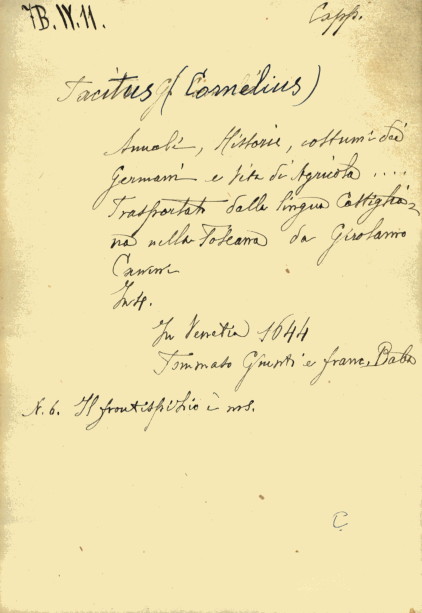 7B.IV.11.
Capp.
Tacitus (Cornelius)
Annali, Historie, costumi dei
Germani e Vita di Agricola ....
Trasportati dalla lingua Castiglia-
na nella Toscana da Girolamo
Canini
In 4.
In Venetia 1644
Tommaso Giunti e Franc. Baba
N. b. Il frontispizio è ms.
C